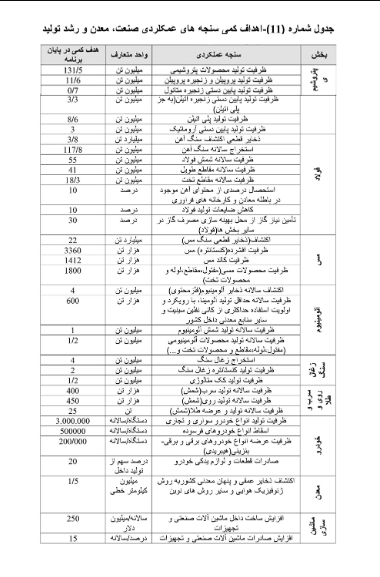 جدول شماره (11)-اهداف کمی سنجه های عمکلردی صنعت، معدن و رشد تولید
بخش سنجه عملکردی واحد متعارف هدف کمی در پایان برنامه
پتروشیمی
ظرفیت تولید محصولات پتروشیمی میلیون تن 131/5
ظرفیت تولید پروپیلن و زنجیره پروپیلن میلیون تن 11/6
ظرفیت تولید پایین دستی زنجیره متانول میلیون تن 0/7
ظرفیت تولید پایین دستی زنجیره اتیلن(به جز پلی اتیلن) میلیون تن 3/3
ظرفیت تولید پلی اتیلن میلیون تن 8/6
ظرفیت تولید پایین دستی آروماتیک میلیون تن 3
فولاد
ذخایر قطعی اکتشاف سنگ آهن میلیارد تن 3/8
استخراج سالانه سنگ آهن میلیون تن 117/8
ظرفیت سالانه شمش فولاد میلیون تن 55
ظرفیت سالانه مقاطع طویل میلیون تن 41
ظرفیت سالانه مقاطع تخت میلیون تن 18/3
استحصال درصدی از محتوای آهن موجود در باطله معادن و کارخانه های فرآوری درصد 10
کاهش ضایعات تولید فولاد درصد 10
تأمین نیاز گاز از محل بهینه سازی مصرف گاز در سایر بخش ها(فولاد) درصد 30
مس
اکتشاف(ذخایر قطعی سنگ مس) میلیارد تن 22
ظرفیت افشرده(کنسانتره) مس هزار تن 3360
ظرفیت کاتد مس هزار تن 1412
ظرفیت محصولات مسی(مفتول،مقاطع،لوله و محصولات تخت) هزار تن 1800
آلومینیوم
اکتشاف سالانه ذخایر آلومینیوم(فلزمحتوی) میلیون تن 4
ظرفیت سالانه حداقل تولید آلومینا، با رویکرد و اولویت استفاده حداکثری از کانی نفلین سینیت و سایر منابع معدنی داخل کشور هزار تن 600
ظرفیت سالانه تولید شمش آلومینیوم میلیون تن 1
ظرفیت سالانه تولید محصولات آلومینیومی (مفتول،لوله،مقاطع و محصولات تخت و...) میلیون تن 1/2
زغال سنگ
استخراج زغال سنگ میلیون تن 4
ظرفیت تولید کنسانتره زغال سنگ میلیون تن 2
ظرفیت تولید کک متالوژی میلیون تن 1/2
سرب و روی و طلا
ظرفیت سالانه تولید سرب(شمش) هزار تن 400
ظرفیت سالانه تولید روی(شمش) هزار تن 450
ظرفیت سالانه تولید و عرضه طلا(شمش) تن 25
خودرو
ظرفیت تولید انواع خودرو سواری و تجاری دستگاه/سالانه 3.000.000
اسقاط انواع خودروهای فرسوده دستگاه/سالانه 500000
ظرفیت عرضه انواع خودروهای برقی و برقی-بنزینی(هیبریدی) دستگاه/سالانه 200/000
صادرات قطعات و لوازم یدکی خودرو درصد سهم از تولید داخل 20
معدن
اکتشاف ذخایر عمقی و پنهان معدنی کشوربه روش ژئوفیزیک هوایی و سایر روش های نوین میلیون کیلومتر خطی 1/5
ماشین سازی
افزایش ساخت داخل ماشین آلات صنعتی و تجهیزات سالانه/میلیون دلار 250
افزایش صادرات ماشین آلات صنعتی و تجهیزات درصد/سالانه 15